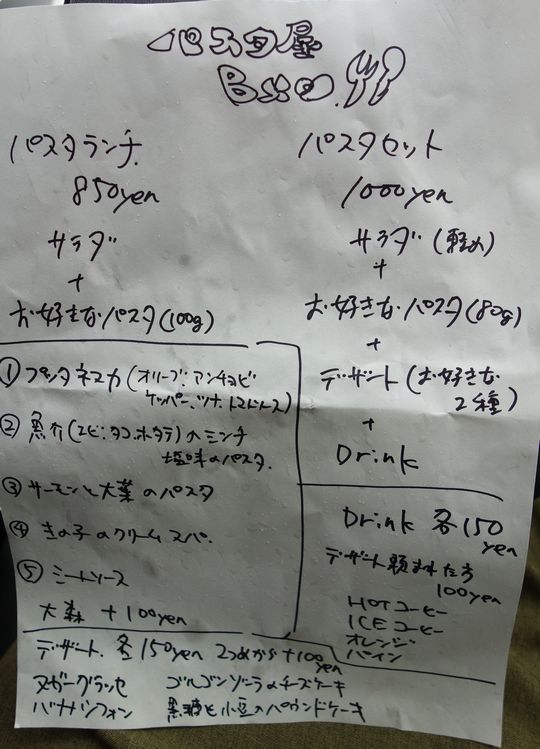 パスタ屋
パスタランチ
850yen
サラダ
+
お好きなパスタ(100g)
パスタセット
1000yen
サラダ(軽め)
+
お好きなパスタ(80g)
+
デザート(お好きな
2種)
+
Drink
① プッタネスカ(オリーブ、アンチョビ
ケッパー、ツナ、トマトソース)
②魚介(エビ、タコ、ホタテ)のミンチ
塩味のパスタ
③ サーモンと大葉のパスタ
④ きの子のクリームスパ
⑤ ミートソース
大森 +100yen
Drink 各150
yen
デザート頼まれたら
100yen
HOTコーヒー
ICEコーヒー
オレンジ
パイン
デザート. 各150yen 2つめから+100
yen
ヌガーグラッセ ゴルゴンゾーラのチーズケーキ
バナナシフォン 黒糖と小豆のパウンドケーキ